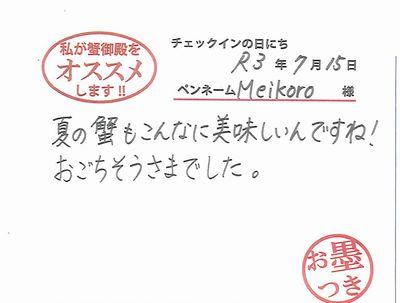 私が蟹御殿を
オススメ
します!!
チェックインの日にち
R3年7月15日
ペンネーム Meikoro 様
夏の蟹もこんなに美味しいんですね!
おごちそうさまでした。
お墨
つき